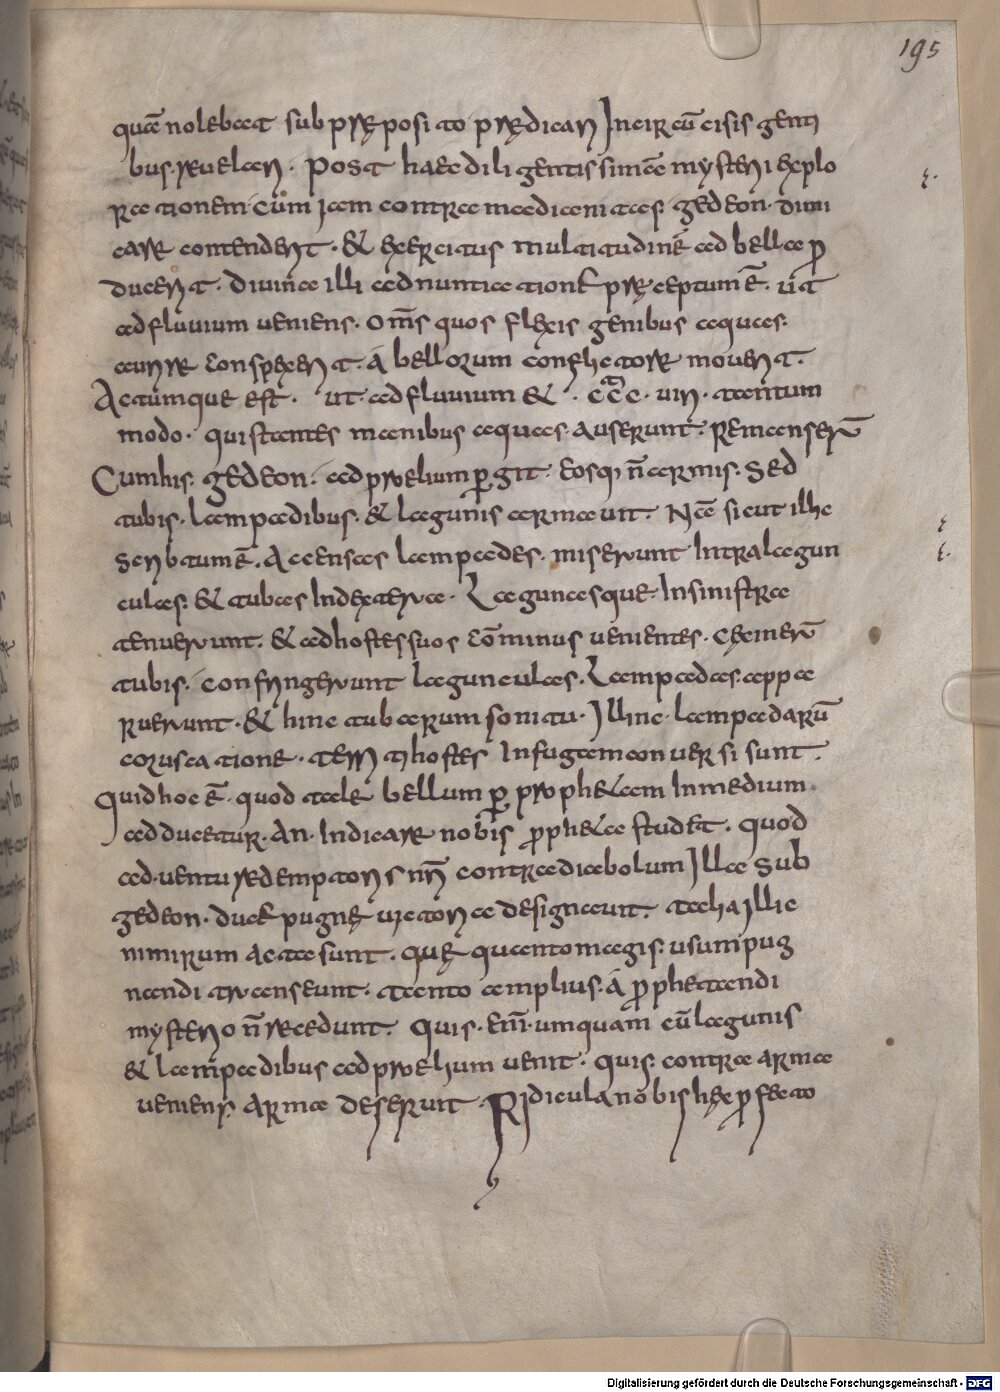 195
quā nolebat sub pręposito prędicari Incircūcisis genti
bus. reuelari. Post haec diligentissimā mysterii explo
rationem cum iam contra madianitas. gedeon. dimi
care contenderet. & exercitus multitudinē ad bella p
duceret. diuina illi adnuntiatione pręceptum ē. ut
ad fluuium ueniens. om̄s quos flexis genibus aquas.
aurire conspexerit. a bellorum conflictatore moueret.
Actumque est. ut ad fluuium & . ccc. uiri. tantum
modo. qui stantes manibus aquas auserunt. Remanserūt
Cum his. gedeon. ad proelium pergit. eosq; n̄ armis. Sed
tubis. lampadibus. & lagunis armauit. Nā sicut illic
Scriptum ē. Accensas lampades. miserunt Intra lagun
culas. & tubas Indextera. Lagunasque. Insinistra
tenuerunt. & ad hostes suos cōminus uenientes. Cecinerūt
tubis. confringerunt lagunculas. Lampadas. appa
ruerunt. & hinc tubarum sonitu. Illinc. lampadarū
coruscatione. territi hostes Infugam conuersi sunt.
Quid hoc ē. quod tale bellum p proph&am Inmedium.
adducatur. An. Indicare nobis p̄ph&a studet. Quod
ad uentū redemptoris nr̄i contra diabolum Illa Sub
gedeon. duce pugnę uictoria designauit. talia Illic
nimirum acta sunt. quę quanto magis. usum pug
nandi transeunt. tanto amplius. a p̄phetandi
mysterio n̄ recedunt. Quis. eni. umquam cū lagunis
& lampadibus ad proelium uenit. quis. contra arma
ueniens. Arma deseruit. Ridicula nobis hęc pfecto
Digitalisierung gefördert durch die Deutsche Forschungsgemeinschaft - DFG